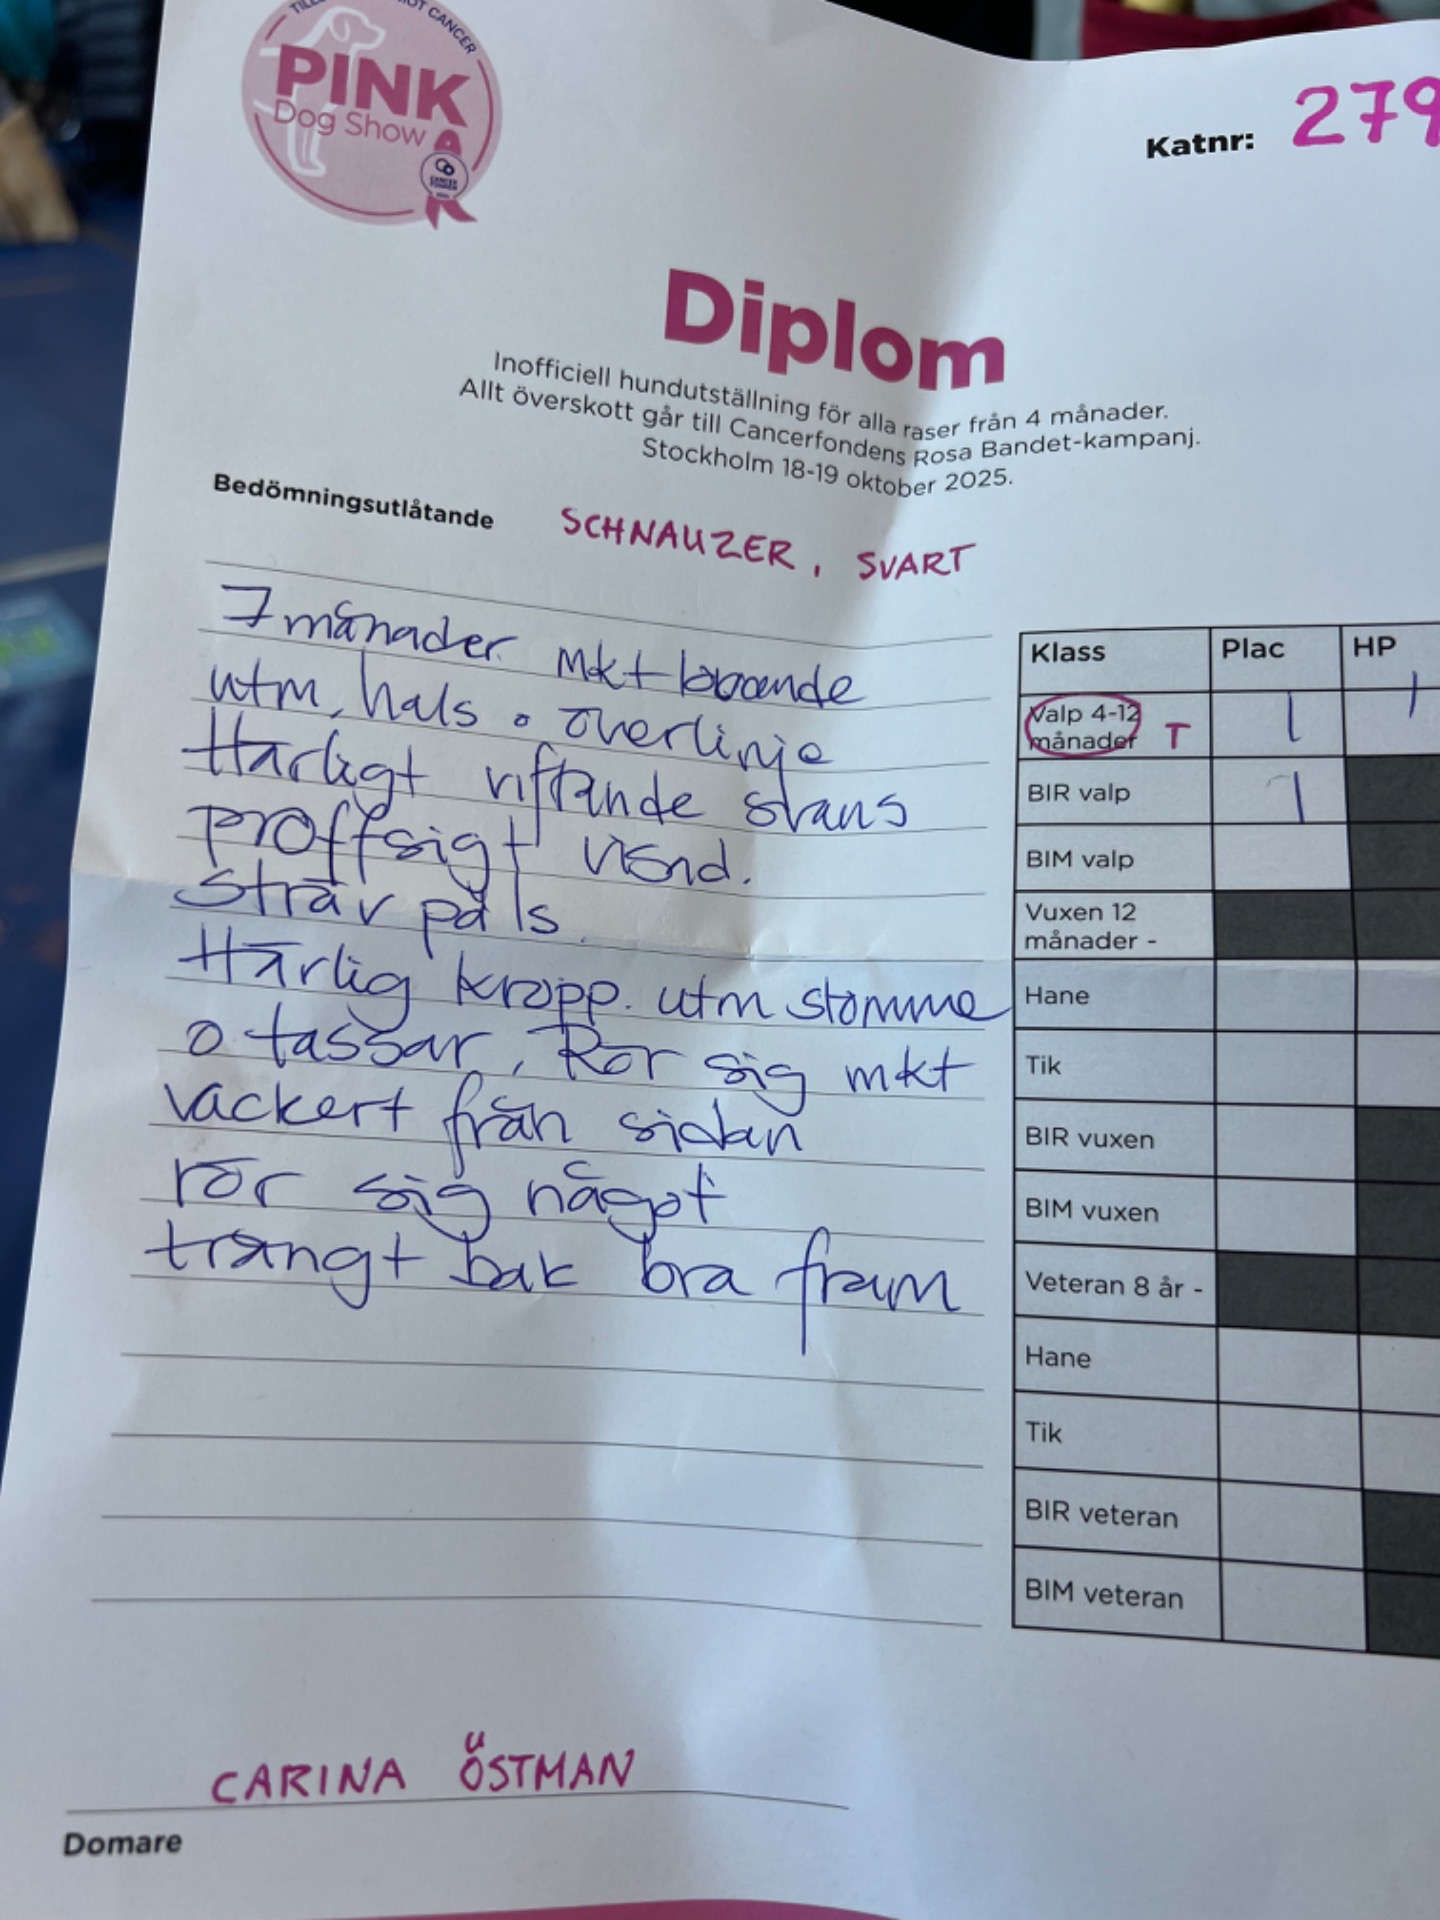 PINK
Dog Show
Katnr: 279
Diplom
Inofficiell hundutställning för alla raser från 4 månader.
Allt överskott går till Cancerfondens Rosa Bandet-kampanj.
Stockholm 18-19 oktober 2025.
Bedömningsutlåtande SCHNAUZER, SVART
7 månader. mkt lovande
utm, hals o överlinje
Härligt viftande svans
proffsigt visad.
Sträv päls.
Härlig kropp. utm stomme
o tassar, Rör sig mkt
vackert från sidan
rör sig något
trångt bak bra fram
Klass Plac HP
Valp 4-12 månader T 1 1
BIR valp 1
BIM valp
Vuxen 12 månader -
Hane
Tik
BIR vuxen
BIM vuxen
Veteran 8 år -
Hane
Tik
BIR veteran
BIM veteran
CARINA ÖSTMAN
Domare